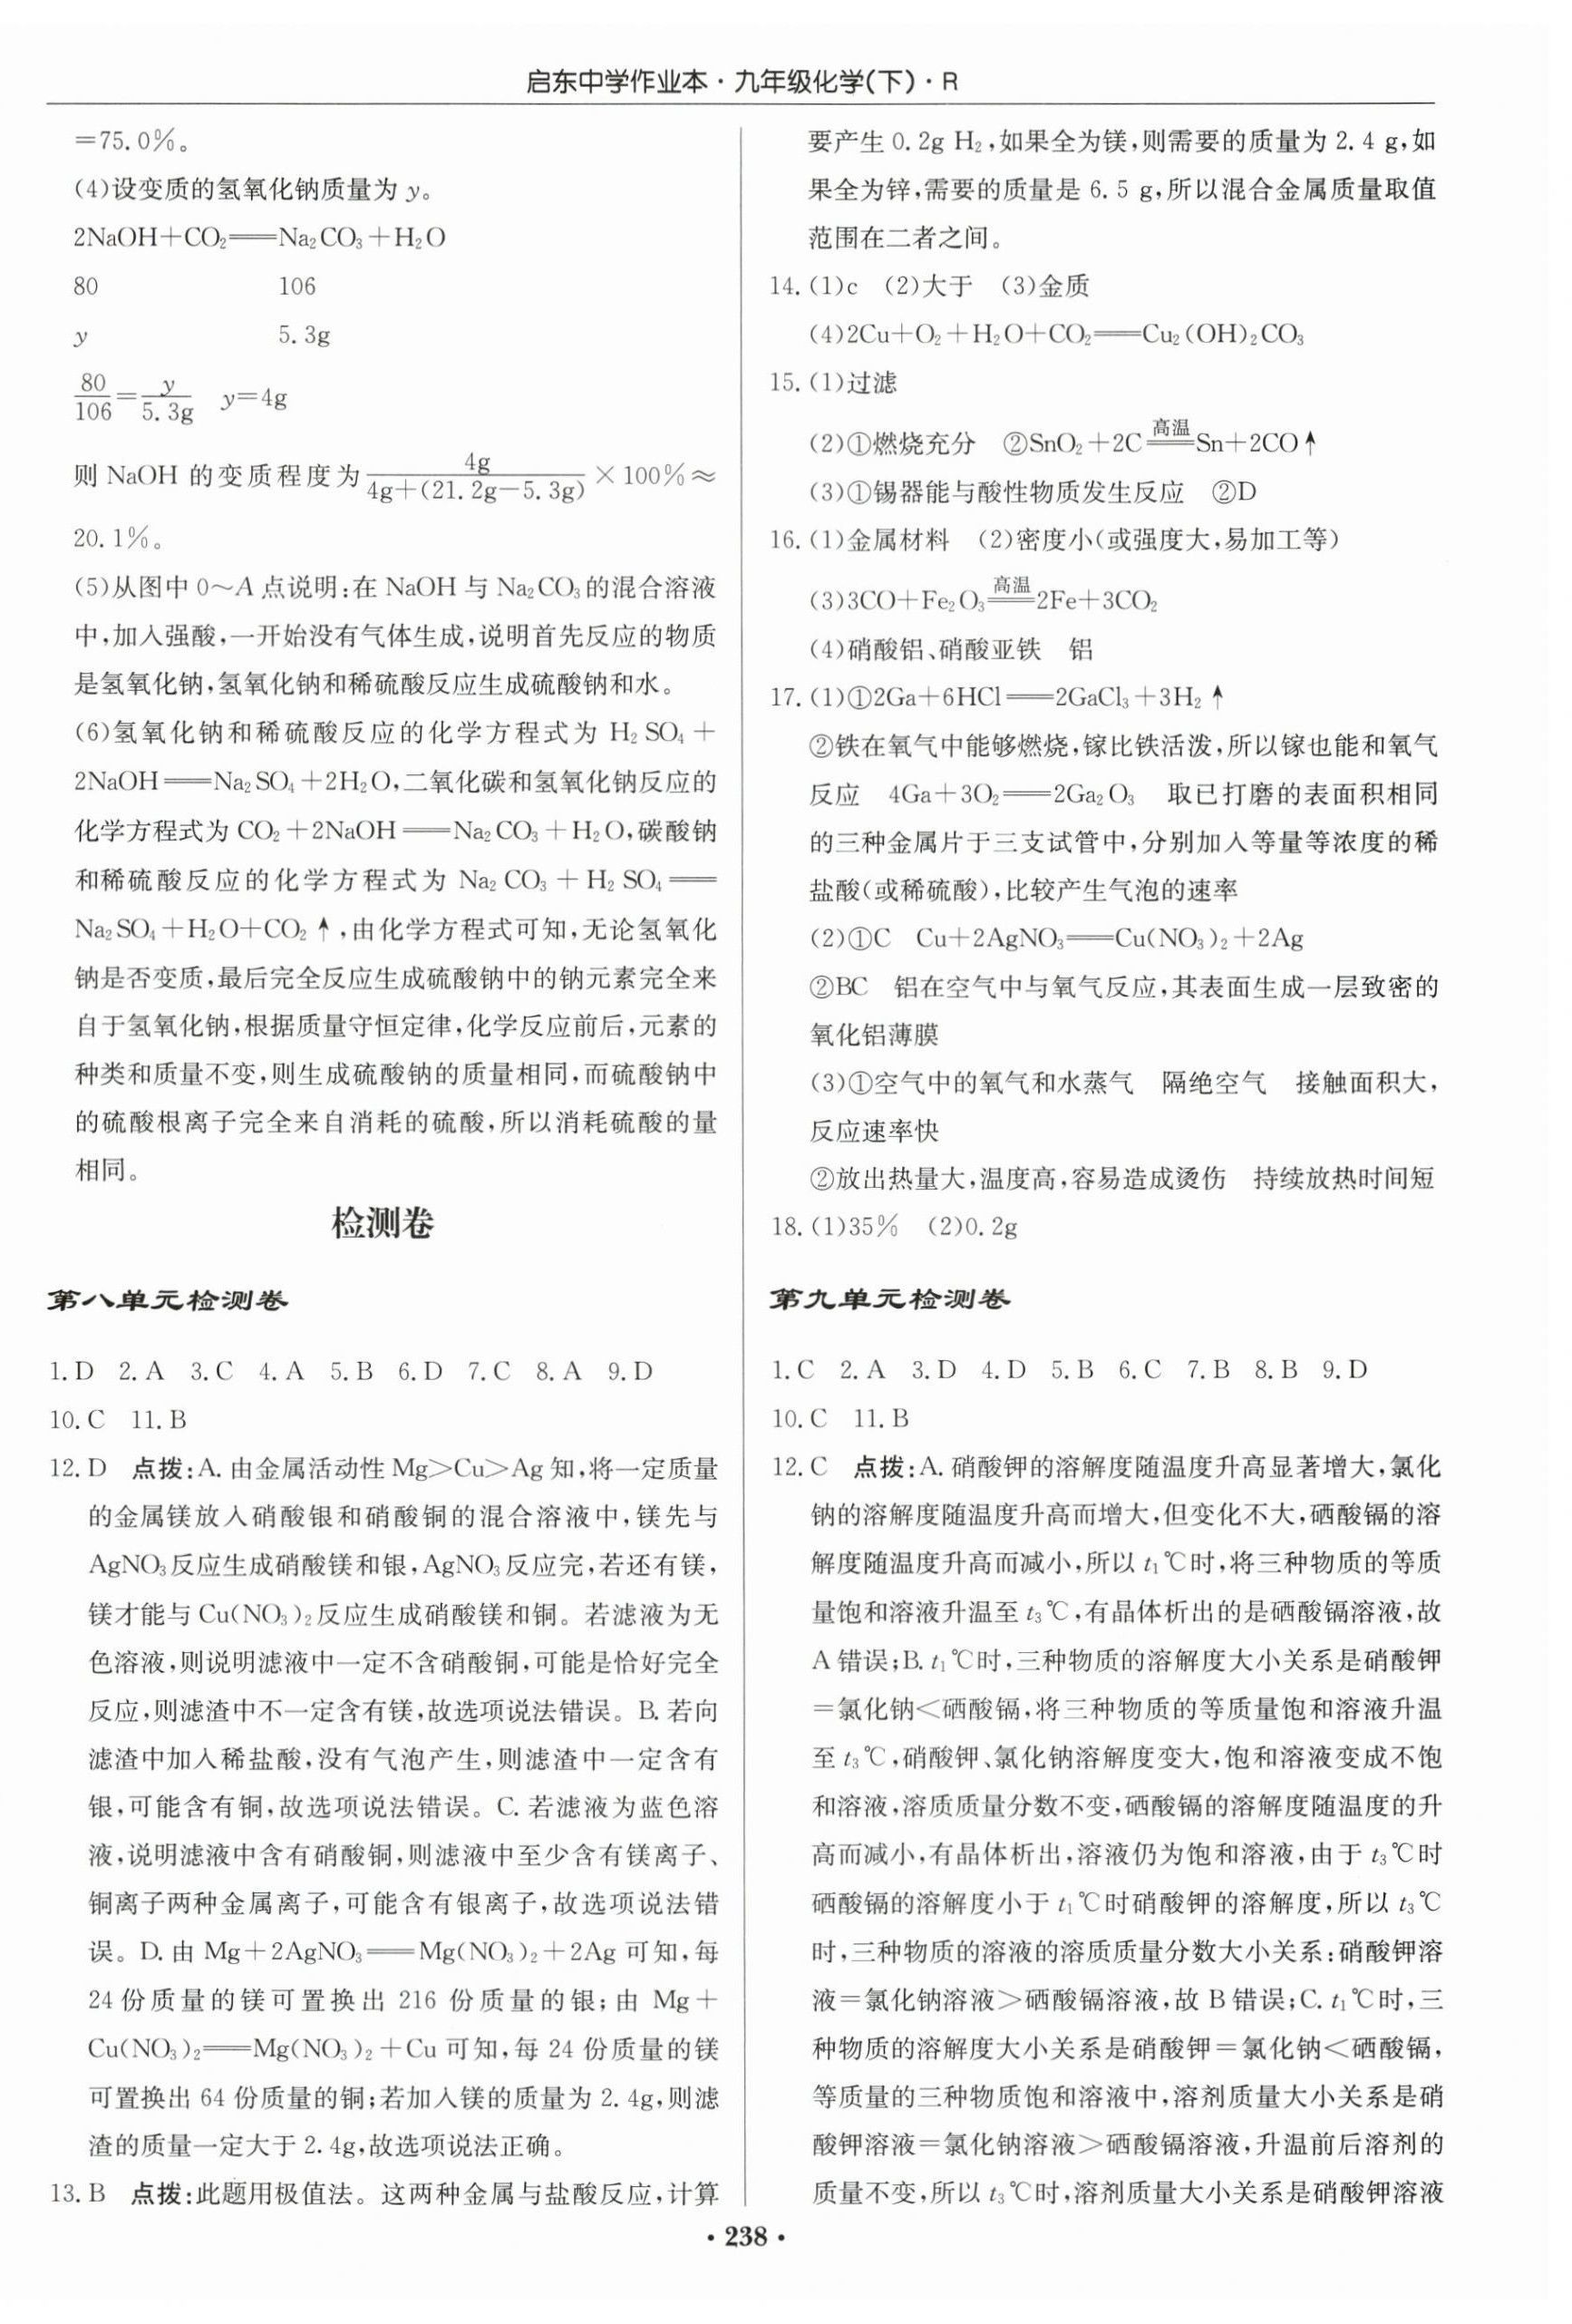 启东中学作业本·九年级化学(下)·R
=75.0%。
(4)设变质的氢氧化钠质量为 y。
2NaOH+CO₂══Na₂CO₃+H₂O
80 106
y 5.3g
80/106=y/5.3g y=4g
则 NaOH 的变质程度为 4g/(4g+(21.2g−5.3g)) ×100%≈
20.1%。
(5)从图中 0~A 点说明:在 NaOH 与 Na₂CO₃的混合溶液
中,加入强酸,一开始没有气体生成,说明首先反应的物质
是氢氧化钠,氢氧化钠和稀硫酸反应生成硫酸钠和水。
(6)氢氧化钠和稀硫酸反应的化学方程式为 H₂SO₄+
2NaOH══Na₂SO₄+2H₂O,二氧化碳和氢氧化钠反应的
化学方程式为 CO₂+2NaOH══Na₂CO₃+H₂O,碳酸钠
和稀硫酸反应的化学方程式为 Na₂CO₃+H₂SO₄══
Na₂SO₄+H₂O+CO₂↑,由化学方程式可知,无论氢氧化
钠是否变质,最后完全反应生成硫酸钠中的钠元素完全来
自于氢氧化钠,根据质量守恒定律,化学反应前后,元素的
种类和质量不变,则生成硫酸钠的质量相同,而硫酸钠中
的硫酸根离子完全来自消耗的硫酸,所以消耗硫酸的量
相同。
检测卷
第八单元检测卷
1.D 2.A 3.C 4.A 5.B 6.D 7.C 8.A 9.D
10.C 11.B
12.D 点拨:A.由金属活动性 Mg>Cu>Ag 知,将一定质量
的金属镁放入硝酸银和硝酸铜的混合溶液中,镁先与
AgNO₃反应生成硝酸镁和银,AgNO₃反应完,若还有镁,
镁才能与 Cu(NO₃)₂反应生成硝酸镁和铜。若滤液为无
色溶液,则说明滤液中一定不含硝酸铜,可能是恰好完全
反应,则滤渣中不一定含有镁,故选项说法错误。B.若向
滤渣中加入稀盐酸,没有气泡产生,则滤渣中一定含有
银,可能含有铜,故选项说法错误。C.若滤液为蓝色溶
液,说明滤液中含有硝酸铜,则滤液中至少含有镁离子、
铜离子两种金属离子,可能含有银离子,故选项说法错
误。D.由 Mg+2AgNO₃══Mg(NO₃)₂+2Ag 可知,每
24 份质量的镁可置换出 216 份质量的银;由 Mg+
Cu(NO₃)₂══Mg(NO₃)₂+Cu 可知,每 24 份质量的镁
可置换出 64 份质量的铜;若加入镁的质量为 2.4g,则滤
渣的质量一定大于 2.4g,故选项说法正确。
13.B 点拨:此题用极值法。这两种金属与盐酸反应,计算
要产生 0.2g H₂,如果全为镁,则需要的质量为 2.4 g,如
果全为锌,需要的质量是 6.5 g,所以混合金属质量取值
范围在二者之间。
14.(1)c (2)大于 (3)金质
(4)2Cu+O₂+H₂O+CO₂══Cu₂(OH)₂CO₃
15.(1)过滤
(2)①燃烧充分 ②SnO₂+2C 高温══ Sn+2CO↑
(3)①锡器能与酸性物质发生反应 ②D
16.(1)金属材料 (2)密度小(或强度大,易加工等)
(3)3CO+Fe₂O₃ 高温══ 2Fe+3CO₂
(4)硝酸铝、硝酸亚铁 铝
17.(1)①2Ga+6HCl══2GaCl₃+3H₂↑
②铁在氧气中能够燃烧,镓比铁活泼,所以镓也能和氧气
反应 4Ga+3O₂══2Ga₂O₃ 取已打磨的表面积相同
的三种金属片于三支试管中,分别加入等量等浓度的稀
盐酸(或稀硫酸),比较产生气泡的速率
(2)①C Cu+2AgNO₃══Cu(NO₃)₂+2Ag
②BC 铝在空气中与氧气反应,其表面生成一层致密的
氧化铝薄膜
(3)①空气中的氧气和水蒸气 隔绝空气 接触面积大,
反应速率快
②放出热量大,温度高,容易造成烫伤 持续放热时间短
18.(1)35% (2)0.2g
第九单元检测卷
1.C 2.A 3.D 4.D 5.B 6.C 7.B 8.B 9.D
10.C 11.B
12.C 点拨:A.硝酸钾的溶解度随温度升高显著增大,氯化
钠的溶解度随温度升高而增大,但变化不大,硒酸镉的溶
解度随温度升高而减小,所以 t₁℃时,将三种物质的等质
量饱和溶液升温至 t₃℃,有晶体析出的是硒酸镉溶液,故
A 错误;B.t₁℃时,三种物质的溶解度大小关系是硝酸钾
=氯化钠<硒酸镉,将三种物质的等质量饱和溶液升温
至 t₃℃,硝酸钾、氯化钠溶解度变大,饱和溶液变成不饱
和溶液,溶质质量分数不变,硒酸镉的溶解度随温度的升
高而减小,有晶体析出,溶液仍为饱和溶液,由于 t₃℃时
硒酸镉的溶解度小于 t₁℃时硝酸钾的溶解度,所以 t₃℃
时,三种物质的溶液的溶质质量分数大小关系:硝酸钾溶
液=氯化钠溶液>硒酸镉溶液,故 B 错误;C.t₁℃时,三
种物质的溶解度大小关系是硝酸钾=氯化钠<硒酸镉,
等质量的三种物质饱和溶液中,溶剂质量大小关系是硝
酸钾溶液=氯化钠溶液>硒酸镉溶液,升温前后溶剂的
质量不变,所以 t₃℃时,溶剂质量大小关系是硝酸钾溶液
·238·